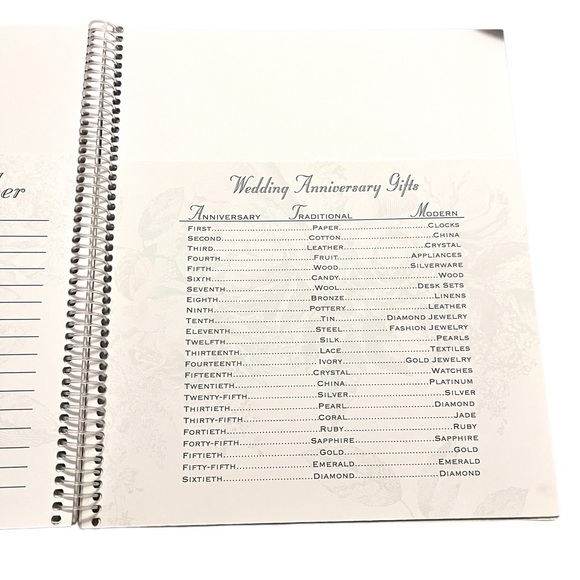 er
Wedding Anniversary Gifts
Anniversary Traditional Modern
First....................Paper....................Clocks
Second....................Cotton....................China
Third....................Leather....................Crystal
Fourth....................Fruit....................Appliances
Fifth....................Wood....................Silverware
Sixth....................Candy....................Wood
Seventh....................Wool....................Desk Sets
Eighth....................Bronze....................Linens
Ninth....................Pottery....................Leather
Tenth....................Tin....................Diamond Jewelry
Eleventh....................Steel....................Fashion Jewelry
Twelfth....................Silk....................Pearls
Thirteenth....................Lace....................Textiles
Fourteenth....................Ivory....................Gold Jewelry
Fifteenth....................Crystal....................Watches
Twentieth....................China....................Platinum
Twenty-Fifth....................Silver....................Silver
Thirtieth....................Pearl....................Diamond
Thirty-Fifth....................Coral....................Jade
Fortieth....................Ruby....................Ruby
Forty-Fifth....................Sapphire....................Sapphire
Fiftieth....................Gold....................Gold
Fifty-Fifth....................Emerald....................Emerald
Sixtieth....................Diamond....................Diamond